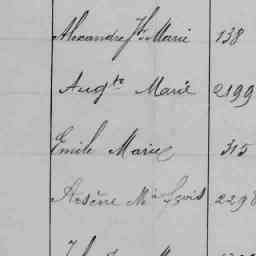 Alexandre Jh Marie 138
Augte Marie 2199
Emile Marie 315
Arsène Mie Louis 2298